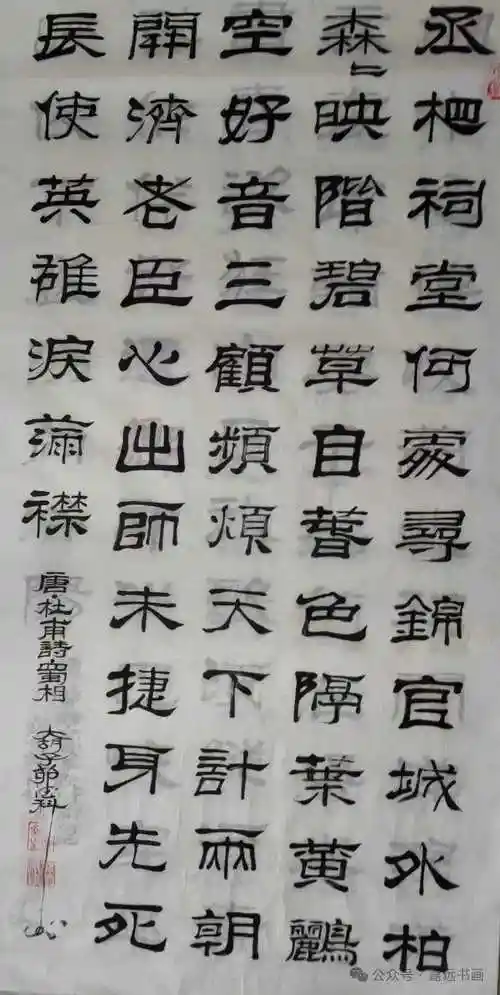 丞相祠堂何處尋錦官城外柏
森〻映階碧草自春色隔葉黃鸝
空好音三顧頻煩天下計兩朝
開濟老臣心出師未捷身先死
長使英雄淚滿襟
唐杜甫詩蜀相
公众号·远书画